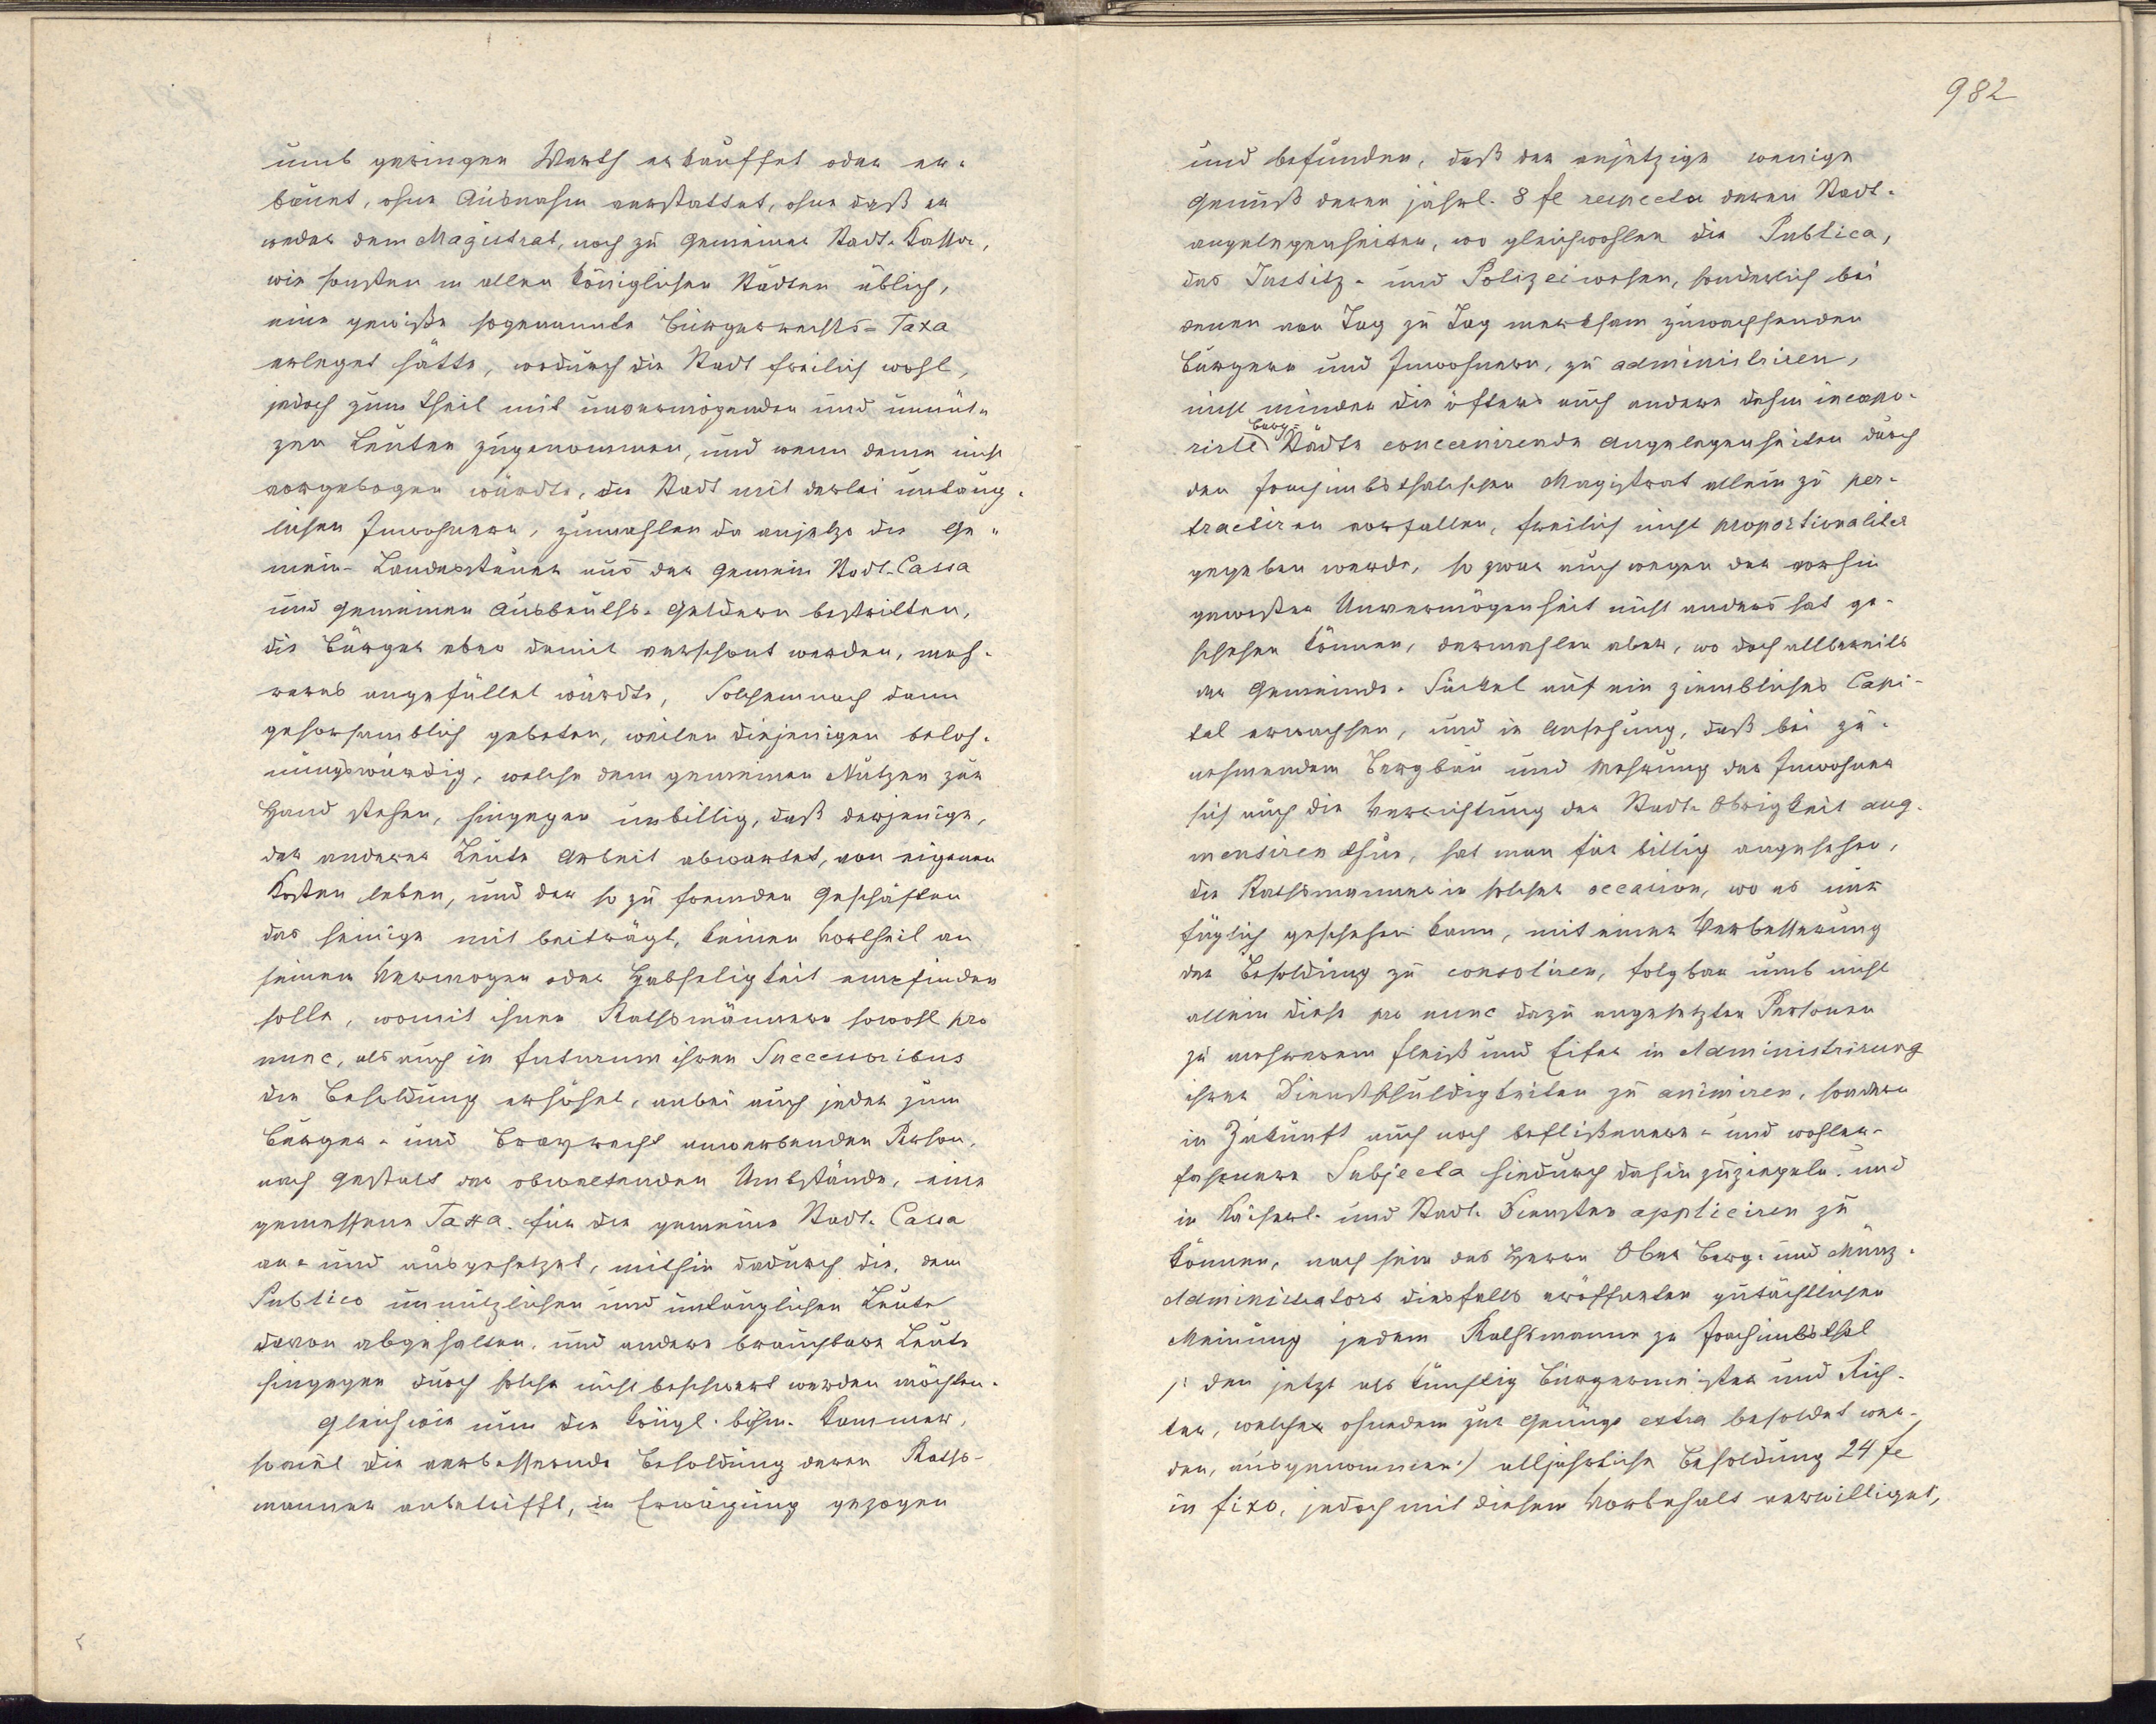 umb geringen Werth erkauffet oder er-
bauet, ohne Ausnahm verstattet, ohne daß er
weder dem Magistrat, noch zu gemeiner Stadt-Kassa,
wie sonsten in allen königlichen Städten üblich,
eine gewiße sogenannte Bürgerrechts-Taxa
erleget hätte, wodurch die Stadt freilich wohl,
jedoch zum theil mit unvermögenden und unnüt-
zen Leuten zugenommen, und wenn deme nicht
vorgebogen würdte, die Stadt mit derlei untaug-
lichen Inwohnern, zumahlen da anjetzo die Ge-
mein-Landessteuer aus der gemein Stadt-Cassa
und gemeinen Ausbeuths-Geldern bestritten,
die Bürger aber damit verschont werden, meh-
reres angefüllet würdte, Solchemnach dann
gehorsamblich gebeten, weilen diejenigen beloh-
nungswürdig, welche dem gemeinen Nutzen zur
Hand stehen, hingegen unbillig, daß derjenige,
der anderer Leute Arbeit abwartet, von eigenen
Kosten leben, und der so zu fremden Geschäften
das seinige mit beiträgt, keinen Vortheil an
seinem Vermogen oder Habseligkeit empfinden
solle, womit ihnen Rathsmännern sowohl pro
nunc, als auch in futurum ihren Successoribus
die Besoldung erhöhet, anbei auch jeder zum
Bürger- und Bergrecht anwerbenden Person,
nach Gestalt der obwaltenden Umbstände, eine
gemessene Taxa für die gemeine Stadt-Cassa
an- und ausgesetzet, mithin dadurch die, dem
Publico unnützlichen und untauglichen Leute
davon abgehalten, und andere brauchbare Leute
hingegen durch solche nicht beschwert werden möchten.
Gleichwie nun die königl. böhm. Kammer,
soviel die verbessernde Besoldung deren Raths-
manner anbetrifft, in Erwägung gezogen
982
und befunden, daß der anjetzige wenige
Genuß deren jährl. 8 fl respectu deren Stadt-
angelegenheiten, wo gleichwohlen die Publica,
das Justitz- und Polizeiwesen, sonderlich bei
denen von Tag zu Tag merksam zuwachsenden
Bürgern und Inwohnern, zu administriren,
nicht minder die öfters auch andere dahin incorpo-
Berg-
rirte Städte concernirende Angelegenheiten durch
den Joachimbsthalschen Magistrat allein zu per-
tractiren vorfallen, freilich nicht proportionaliter
gegeben werde, so zwar auch wegen der vorhin
gewesten Unvermögenheit nicht anders hat ge-
schehen können, dermahlen aber, wo doch allbereits
der Gemeinde-Säckel auf ein ziembliches Capi-
tal erwachsen, und in Ansehung, daß bei zu-
nehmendem Bergbau und Mehrung der Inwohner
sich auch die Verrichtung der Stadt-Obrigkeit aug-
mentiren thue, hat man für billig angesehen,
die Rathsmanner in solcher occasion, wo es nur
füglich geschehen kann, mit einer Verbesserung
der Besoldung zu consoliren, folgbar umb nicht
allein diese pro nunc dazu angesetzten Personen
zu mehrerem Fleiß und Eifer in Administrirung
ihrer Dienstschuldigkeiten zu animiren, sondern
in Zukunft auch noch beflißenere- und wohler-
fahrnere Subjecta hiedurch dahin zuziegeln und
in Kaiserl.- und Stadt-Diensten appliciren zu
können, nach sein des Herrn Ober Berg- und Münz-
Administrators diesfalls eröffneten gutächtlichen
Meinung jedem Rathsmanne zu Joachimbsthal
/: den jetzt als künftig Bürgermeister und Rich-
ter, welche ohnedem zur Genüge extra besoldet wer-
den, ausgenommen :/ alljährliche Besoldung 24 fl
in fixo, jedoch mit diesem Vorbehalt verwilliget,